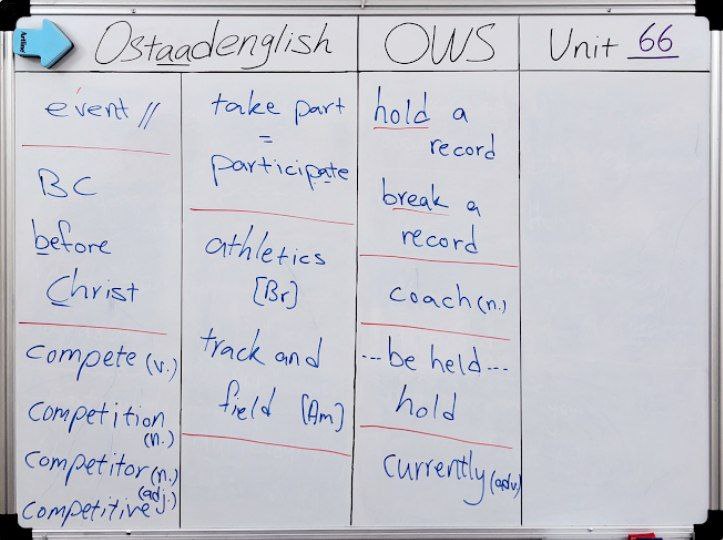 Ostaadenglish
OWS
Unit 66
event //
BC
before
Christ
compete (v.)
competition
(n.)
competitor (n.)
(adj.)
competitive
take part
=
participate
athletics
[Br]
track and
field [Am]
hold a
record
break a
record
coach (n.)
...be held...
hold
currently (adv.)